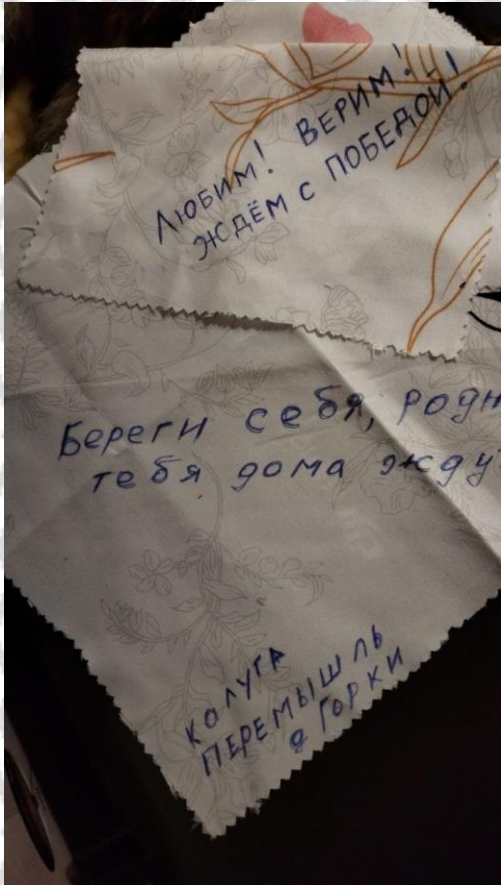 ЛЮБИМ! ВЕРИМ!
ЖДЁМ С ПОБЕДОЙ!
Береги себя, родн
тебя дома жду
КАЛУГА
ПЕРЕМЫШЛЬ
д ГОРКИ